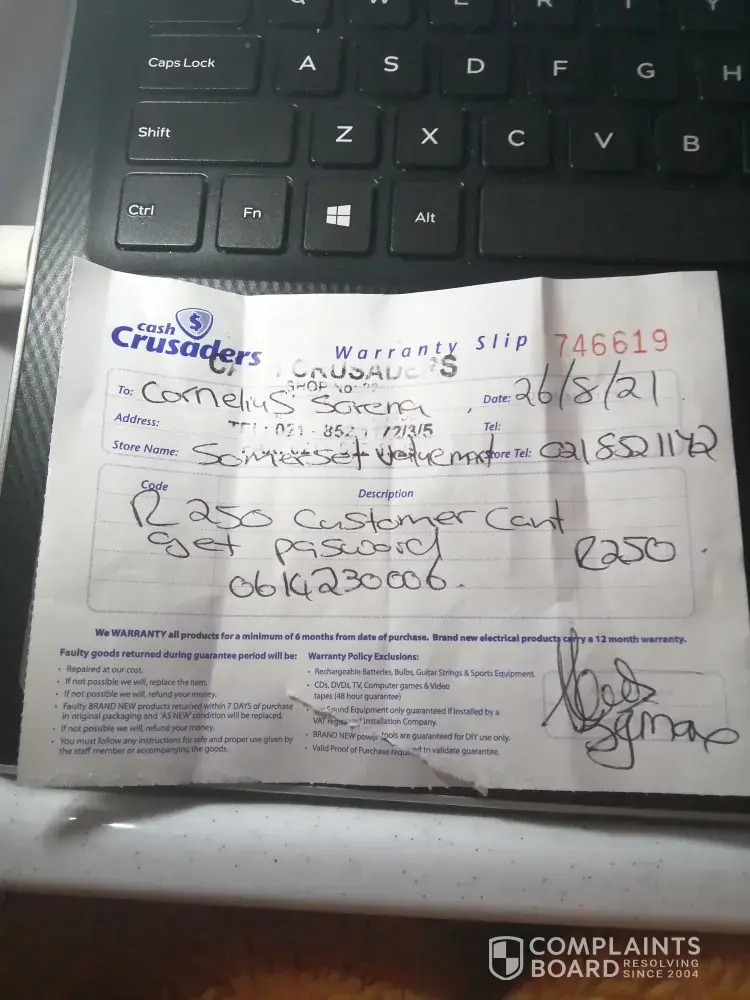 Q W E R T Y
Caps Lock A S D F G H
Shift Z X C V B
Ctrl Fn Alt
cash
Crusaders
Warranty Slip 746619
CRUSADERS
SHOP No:
To: Cornelius Date: 26/8/21
TEL: 021 - 852 1172/3/5
Address: Tel:
Store Name: Somerset Store Tel: 0218521172
Code Description
R250 Customer Cant
get pasword R250
0614230006.
We WARRANTY all products for a minimum of 6 months from date of purchase. Brand new electrical products carry a 12 month warranty.
Faulty goods returned during guarantee period will be:
• Repaired at our cost.
• If not possible we will, replace the item.
• If not possible we will, refund your money.
• Faulty BRAND NEW products returned within 7 DAYS of purchase
in original packaging and 'AS NEW' condition will be replaced.
• If not possible we will, refund your money.
• You must follow any instructions for safe and proper use given by
the staff member or accompanying the goods.
Warranty Policy Exclusions:
• Rechargeable Batteries, Bulbs, Guitar Strings & Sports Equipment.
• CDs, DVDs, TV, Computer games & Video
tapes (48 hour guarantee)
Sound Equipment only guaranteed if installed by a
VAT Installation Company.
• BRAND NEW power tools are guaranteed for DIY use only.
• Valid Proof of Purchase required to validate guarantee.
COMPLAINTS
BOARD RESOLVING
SINCE 2004